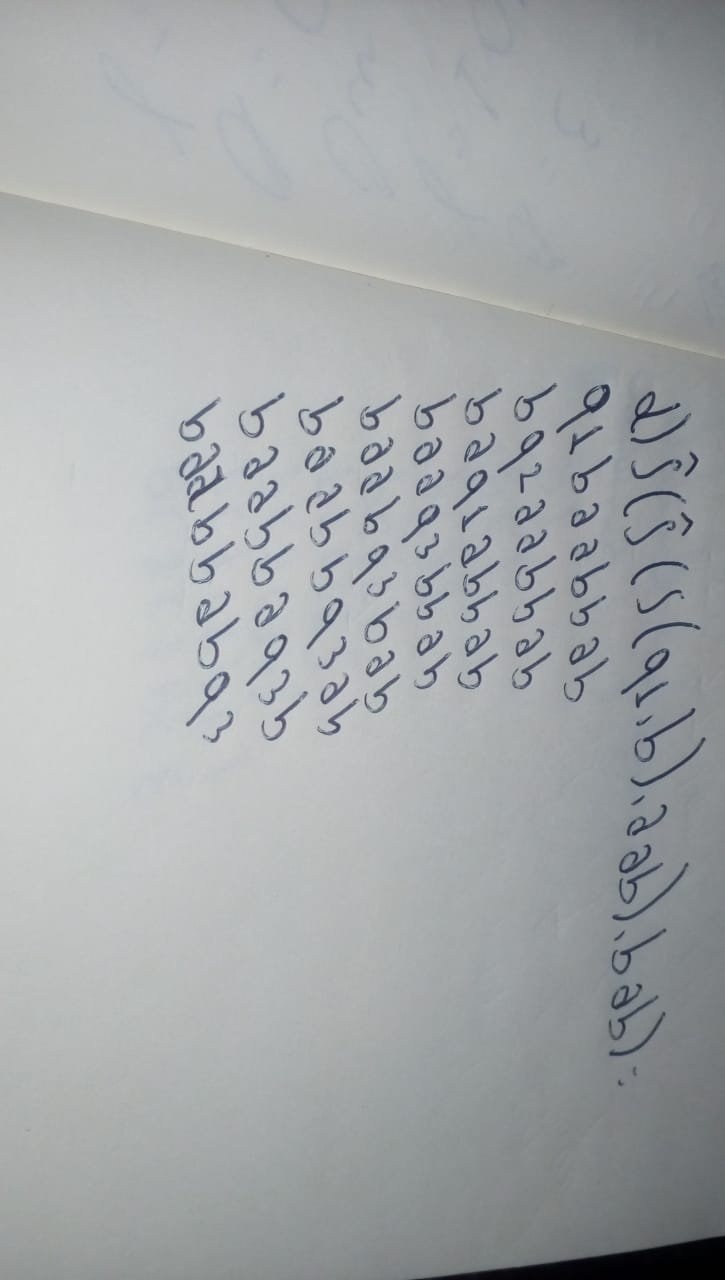 d) δ̂(δ̂(δ(q1,b),aab),bab):
q1baabbab
bq2aabbab
baq1abbab
baaq3bbab
baabq3bab
baabbq3ab
baabbaq3b
baabbabq3